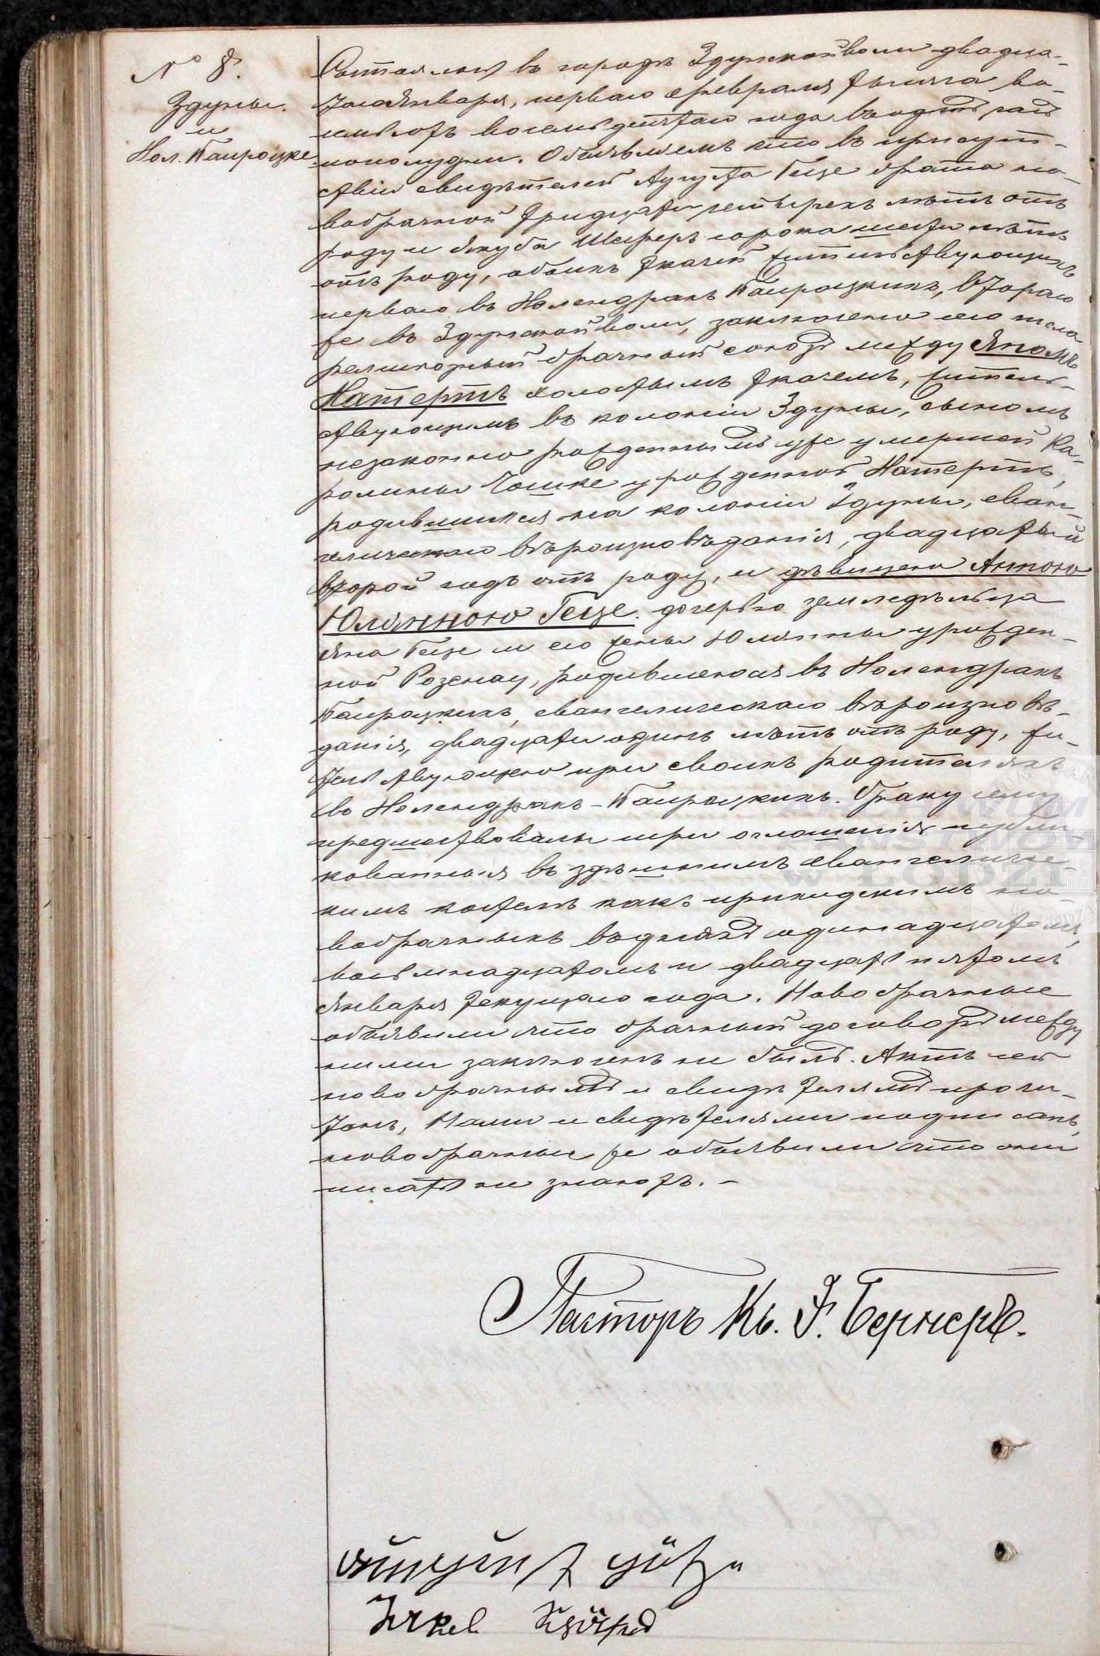 № 8.
Здуны
и
Нол. Папроцке
Состоялось въ городѣ Здунской воли двадца-
таго Января, перваго Февраля тысяча во-
семьсотъ восемьдесятаго года въ часъ
пополудни. Объявляемъ что въ присут-
ствіи свидѣтелей Августа Геце брата но-
вобрачной тридцати четырехъ лѣтъ отъ
роду и Якуба Шеферъ сорока шести лѣтъ
отъ роду, обоихъ ткачей жительствующихъ
перваго въ Нолендрахъ Папроцкихъ, втораго
же въ Здунской воли, заключено сего числа
религіозный брачный союзъ между Яномъ
Натертъ холостымъ ткачемъ, житель-
ствующимъ въ колоніи Здуны, сыномъ
незаконно рожденнымъ уже умершей Ка-
ролины урожденной Натертъ,
родившимся на колоніи Здуны, еван-
гелическаго вѣроисповѣданія, двадцатый
второй годъ отъ роду, и дѣвицею Анною
Юліанною Геце дочерью земледѣльца
Яна Геце и его жены Юліянны урожден-
ной Розенау, родившеюся въ Нолендрахъ
Папроцкихъ, евангелическаго вѣроисповѣ-
данія, двадцати одинъ лѣтъ отъ роду, жи-
тельствующею при своихъ родителяхъ
въ Нолендрахъ-Папроцкихъ. Браку сему
предшествовали три оглашенія публи
кованныя въ здѣшнимъ евангеличес
кимъ костелѣ какъ приходскимъ но
вобрачныхъ въ дняхъ одинадцатомъ,
восьмнадцатомъ и двадцать пятомъ
Января текущаго года. Новобрачные
объявили что брачный договоръ между
ними заключенъ не былъ. Актъ сей
новобрачнымъ и свидѣтелямъ прочи-
танъ, Нами и свидѣтелями подписанъ,
новобрачные же объявили что они
писать не знаютъ. -
Пасторъ Кс. Э. Бернеръ.
August Götz